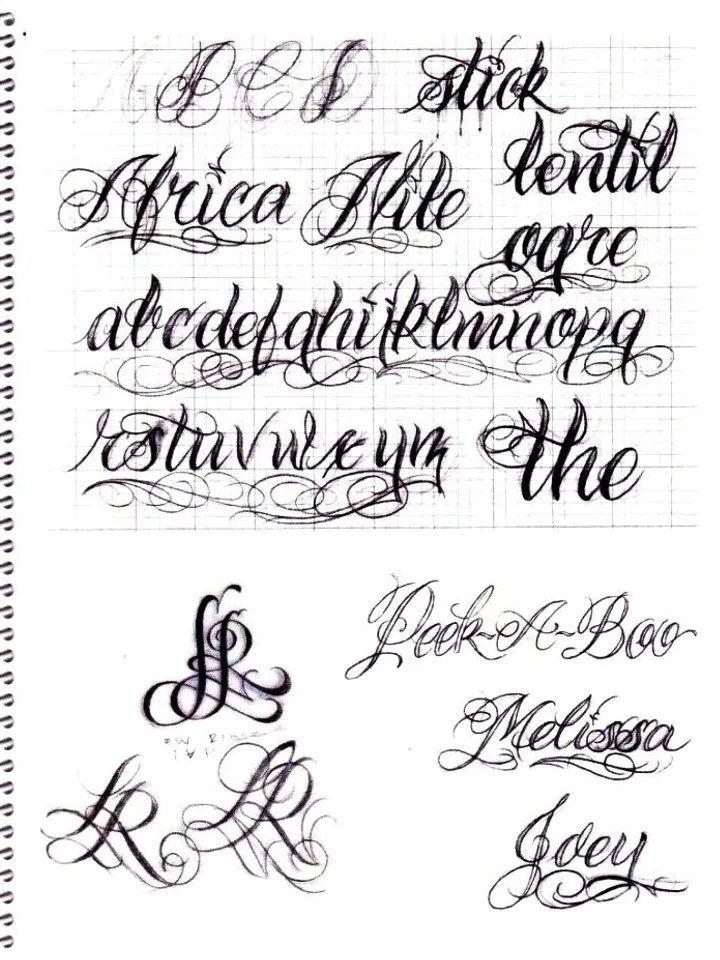 A B C D stick
lentil
Africa Nile
ogre
abcdefghijklmnopq
rstuvwxyz the
LR
Peek-A-Boo
Melissa
LR LR
Joey